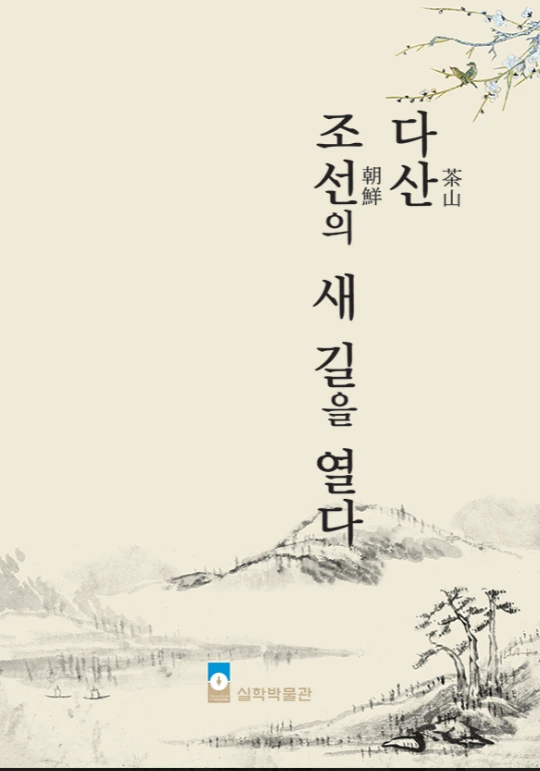 다산
茶山
조선의 새 길을 열다
朝鮮
실학박물관